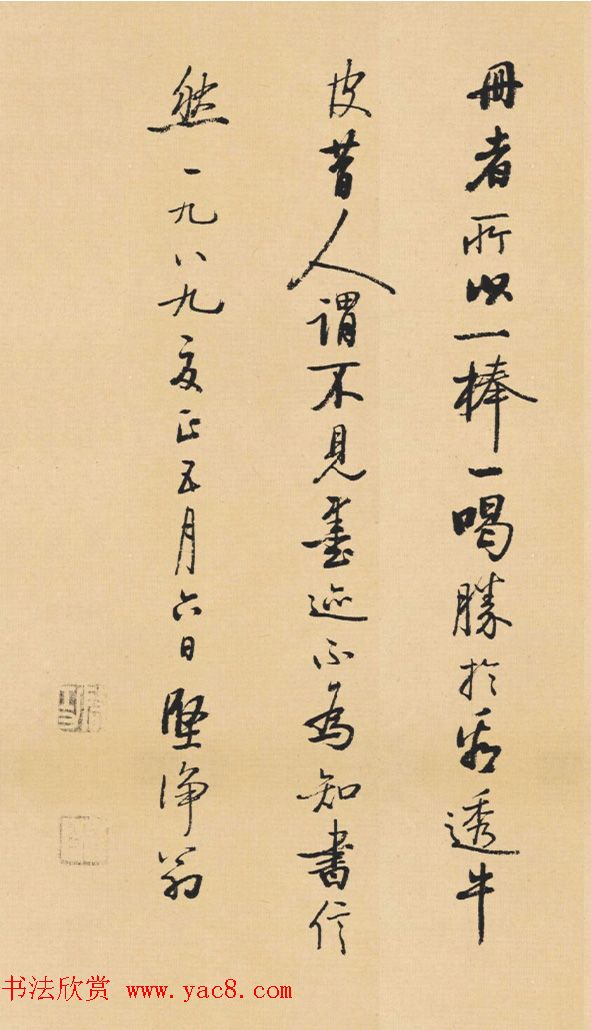 冊者所以一棒一喝勝於看透牛
皮昔人謂不見墨迹不為知書信
然一九八九夏正五月六日堅浄翁
书法欣赏 www.yac8.com